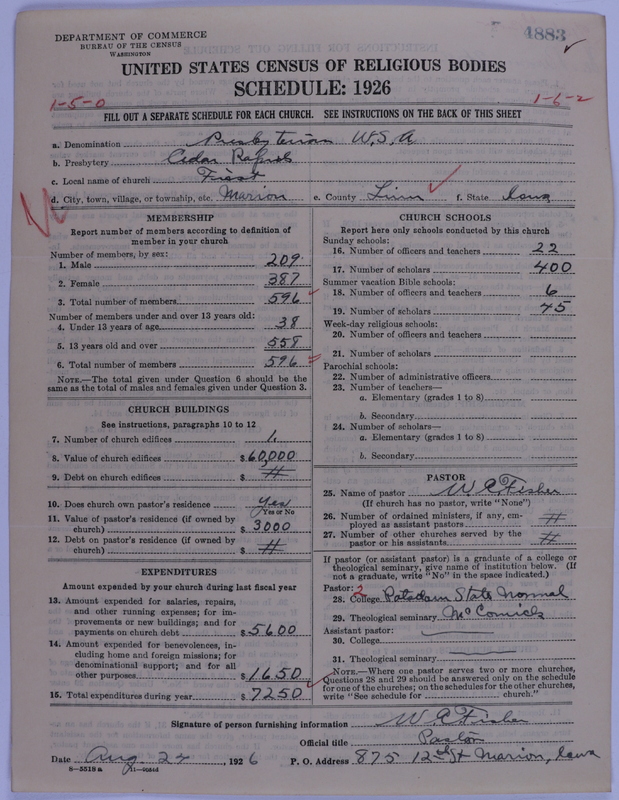 DEPARTMENT OF COMMERCE
BUREAU OF THE CENSUS
WASHINGTON
4883
UNITED STATES CENSUS OF RELIGIOUS BODIES
SCHEDULE: 1926
1-5-0
1-6-2
FILL OUT A SEPARATE SCHEDULE FOR EACH CHURCH. SEE INSTRUCTIONS ON THE BACK OF THIS SHEET
a. Denomination Presbyterian U.S.A.
b. Presbytery Cedar Rapids
c. Local name of church First
d. City, town, village, or township, etc. Marion e. County Linn f. State Iowa
MEMBERSHIP
Report number of members according to definition of
member in your church
Number of members, by sex:
1. Male 209
2. Female 387
3. Total number of members 596
Number of members under and over 13 years old:
4. Under 13 years of age 38
5. 13 years old and over 558
6. Total number of members 596
NOTE.—The total given under Question 6 should be the
same as the total of males and females given under Question 3.
CHURCH BUILDINGS
See instructions, paragraphs 10 to 12
7. Number of church edifices 1
8. Value of church edifices $60,000
9. Debt on church edifices $
10. Does church own pastor's residence Yes
Yes or No
11. Value of pastor's residence (if owned by
church) $3000
12. Debt on pastor's residence (if owned by
church) $
EXPENDITURES
Amount expended by your church during last fiscal year
13. Amount expended for salaries, repairs,
and other running expenses; for im-
provements or new buildings; and for
payments on church debt $5600
14. Amount expended for benevolences, in-
cluding home and foreign missions; for
denominational support; and for all
other purposes $1650
15. Total expenditures during year $7250
CHURCH SCHOOLS
Report here only schools conducted by this church
Sunday schools:
16. Number of officers and teachers 22
17. Number of scholars 400
Summer vacation Bible schools:
18. Number of officers and teachers 6
19. Number of scholars 45
Week-day religious schools:
20. Number of officers and teachers
21. Number of scholars
Parochial schools:
22. Number of administrative officers
23. Number of teachers—
a. Elementary (grades 1 to 8)
b. Secondary
24. Number of scholars—
a. Elementary (grades 1 to 8)
b. Secondary
PASTOR
25. Name of pastor W. A. Fisher
(If church has no pastor, write "None")
26. Number of ordained ministers, if any, em-
ployed as assistant pastors
27. Number of other churches served by the
pastor or his assistants
If pastor (or assistant pastor) is a graduate of a college or
theological seminary, give name of institution below. (If
not a graduate, write "No" in the space indicated.)
Pastor: 2
28. College Potsdam State Normal
29. Theological seminary McCormick
Assistant pastor:
30. College
31. Theological seminary
NOTE.—Where one pastor serves two or more churches,
Questions 28 and 29 should be answered only on the schedule
for one of the churches; on the schedules for the other churches,
write "See schedule for church."
Signature of person furnishing information W. A. Fisher
Official title Pastor
Date Aug. 24, 1926 P. O. Address 875 12th St Marion, Iowa
8-5518a